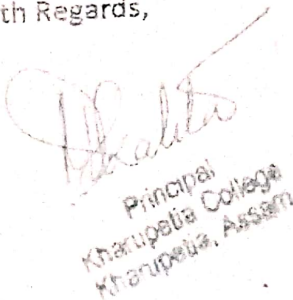 th Regards,
Principal
Kharupetia College
Kharupetia, Assam